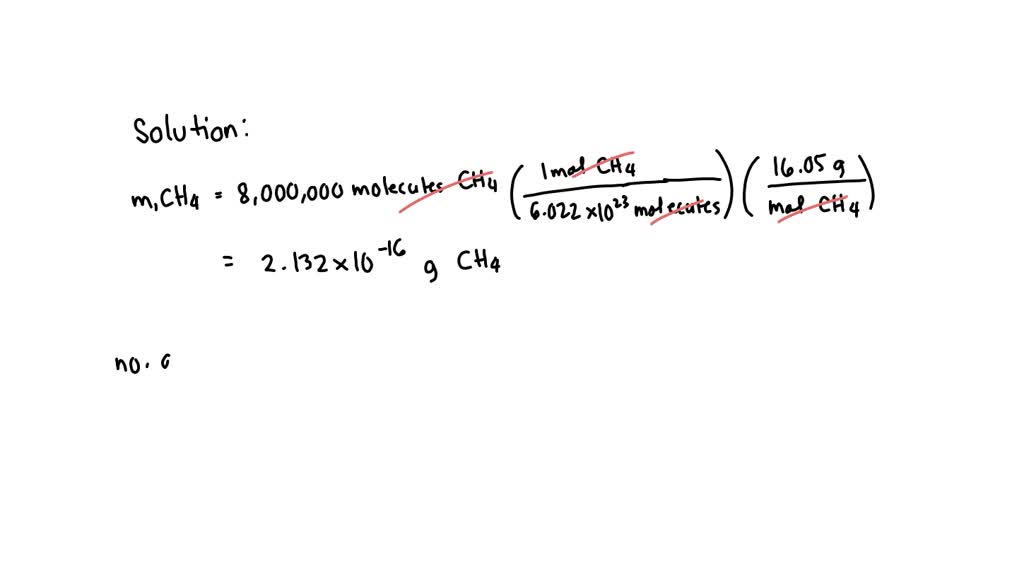 Solution:
m,CH4 = 8,000,000 molecules CH4 (1 mol CH4 / 6.022 × 10^23 molecules) (16.05 g / mol CH4)
= 2.132 × 10^-16 g CH4
no. o